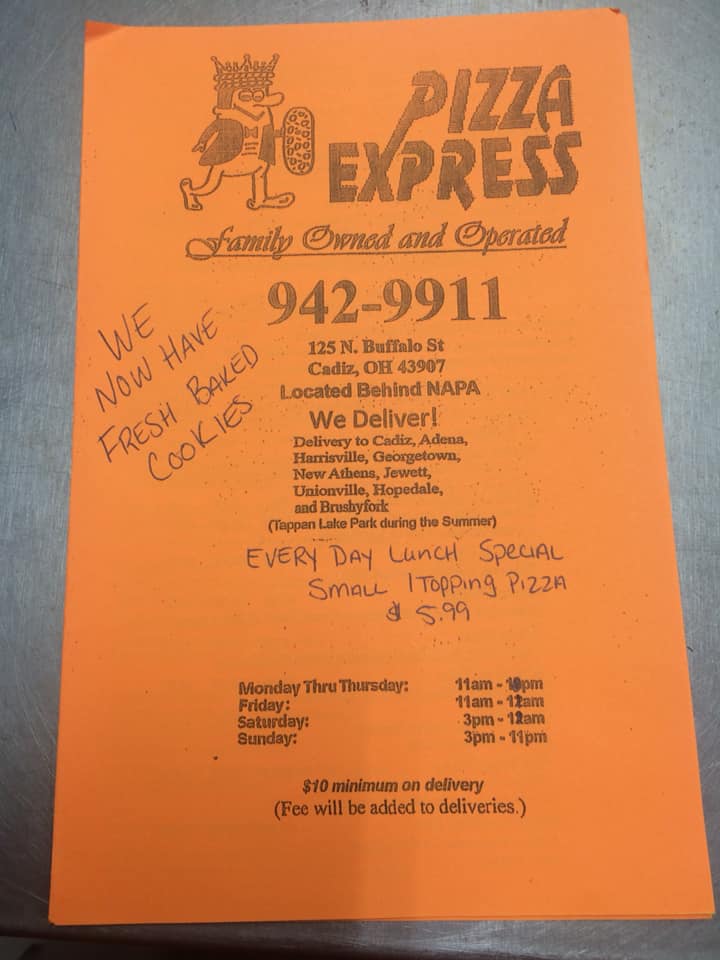 PIZZA
EXPRESS
Family Owned and Operated
942-9911
125 N. Buffalo St
Cadiz, OH 43907
Located Behind NAPA
We Deliver!
Delivery to Cadiz, Adena,
Harrisville, Georgetown,
New Athens, Jewett,
Unionville, Hopedale,
and Brushyfork
(Tappan Lake Park during the Summer)
WE
NOW HAVE
FRESH BAKED
COOKIES
EVERY DAY LUNCH SPECIAL
SMALL 1 TOPPING PIZZA
$ 5.99
Monday Thru Thursday: 11am - 10pm
Friday: 11am - 12am
Saturday: 3pm - 12am
Sunday: 3pm - 11pm
$10 minimum on delivery
(Fee will be added to deliveries.)